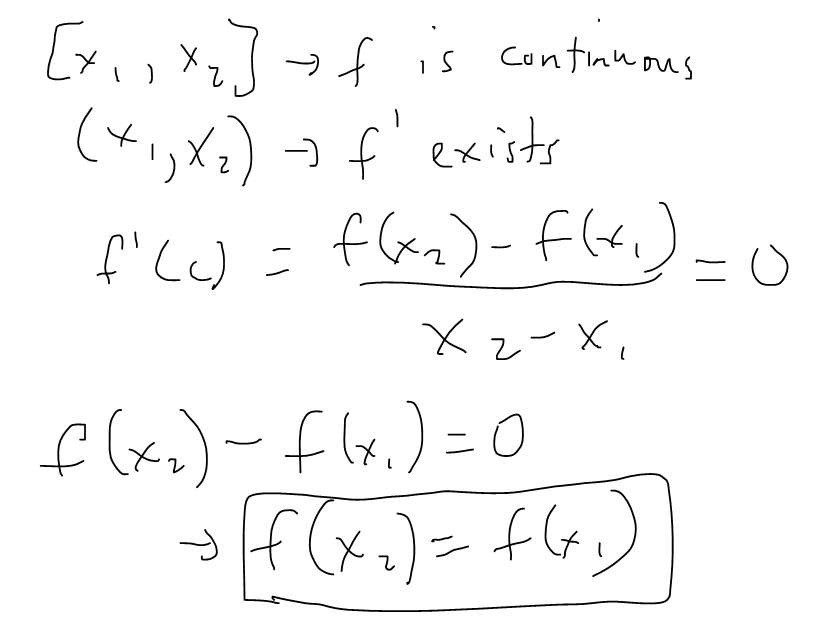 [x₁, x₂] → f is continuous
(x₁, x₂) → f' exists
f'(c) = (f(x₂) - f(x₁)) / (x₂ - x₁) = 0
f(x₂) - f(x₁) = 0
→ f(x₂) = f(x₁)